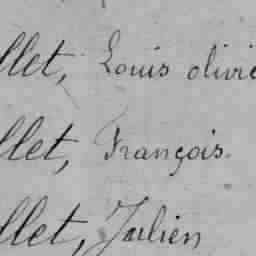 llet, Louis olivie
llet, François.
llet, Julien